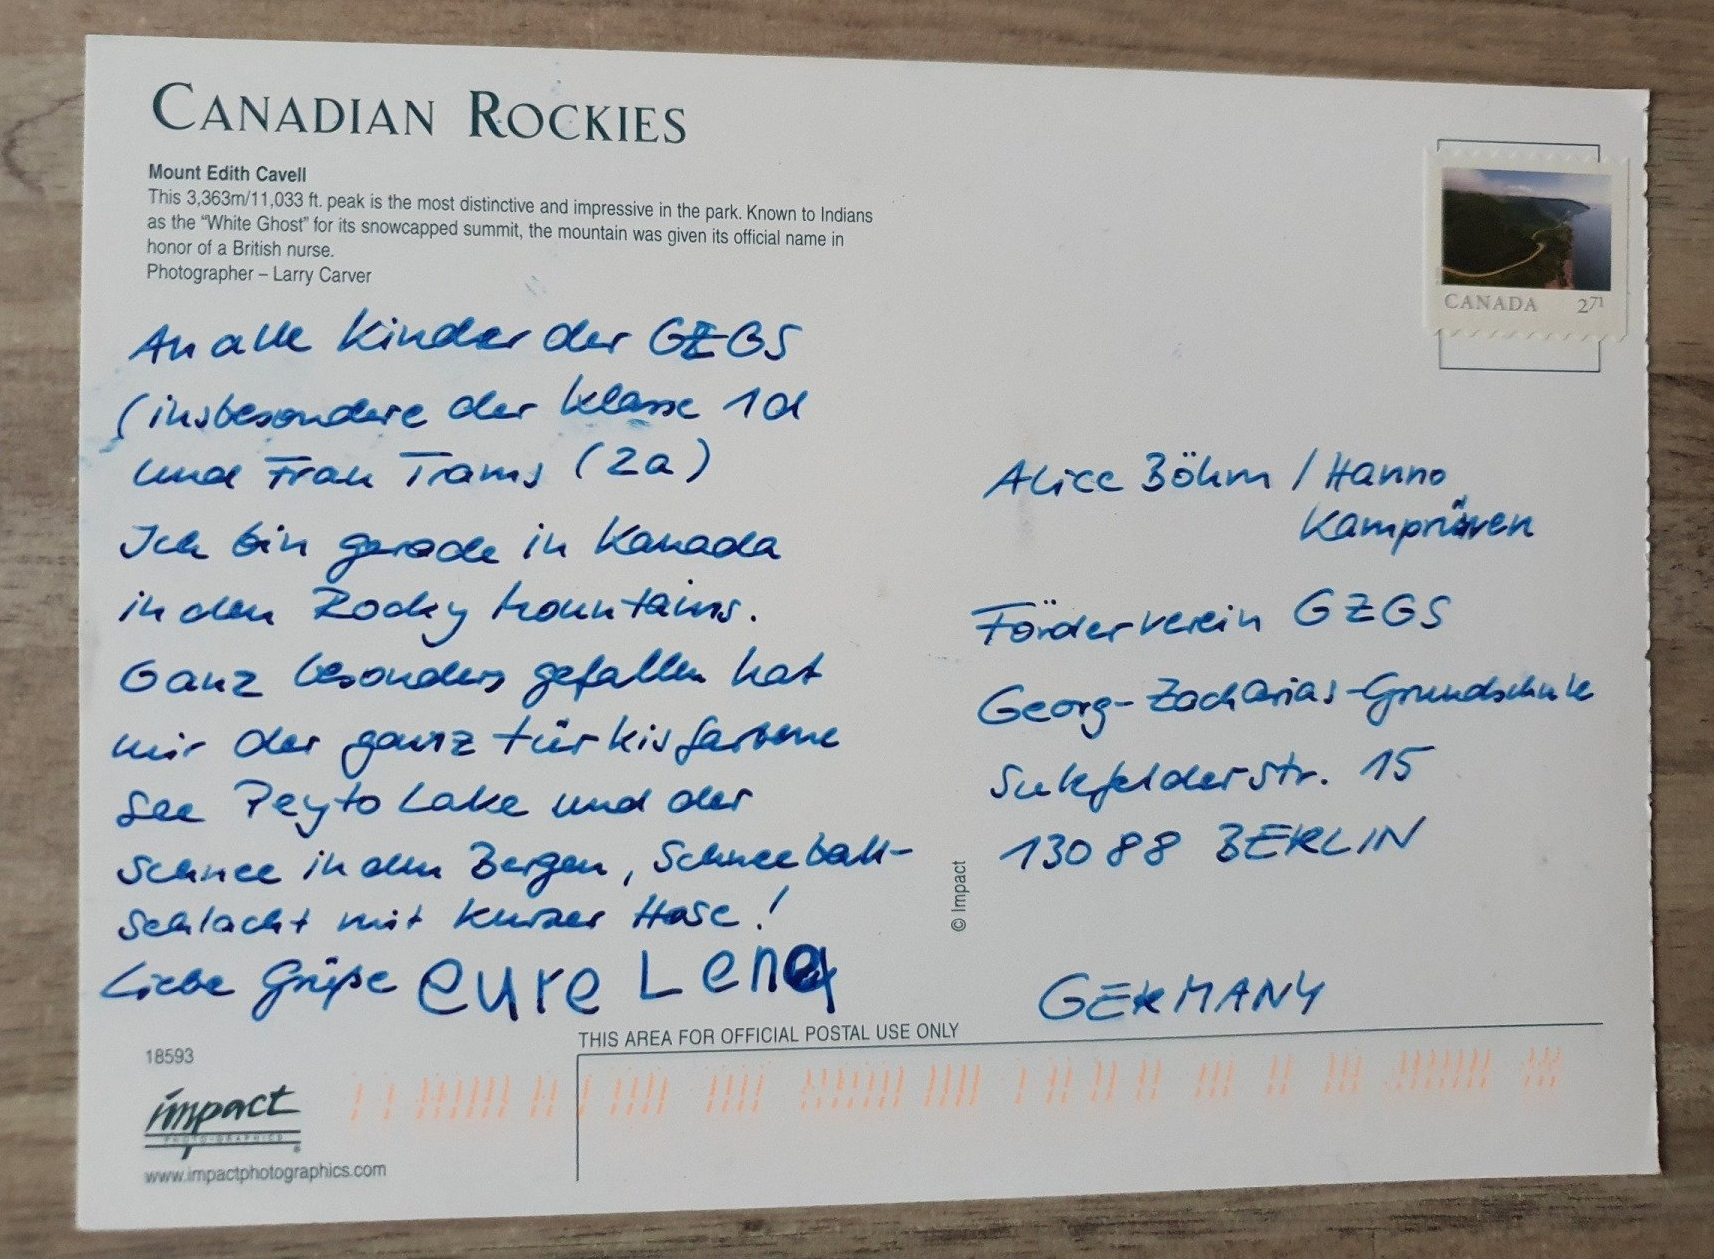 CANADIAN ROCKIES
Mount Edith Cavell
This 3,363m/11,033 ft. peak is the most distinctive and impressive in the park. Known to Indians
as the "White Ghost" for its snowcapped summit, the mountain was given its official name in
honor of a British nurse.
Photographer – Larry Carver
An alle Kinder der GZGS
(insbesondere der Klasse 1d
und Frau Trams (2a)
Ich bin gerade in Kanada
in den Rocky Mountains.
Ganz besonders gefallen hat
mir der ganz türkisfarbene
See Peyto Lake und der
Schnee in den Bergen, Schneeball-
schlacht mit kurzer Hose!
Liebe Grüße eure Lena
18593
impact
PHOTOGRAPHICS
www.impactphotographics.com
THIS AREA FOR OFFICIAL POSTAL USE ONLY
© Impact
CANADA 271
Alice Böhm / Hanno
Förderverein GZGS
Georg-Zacharias-Grundschule
15
13088 BERLIN
GERMANY